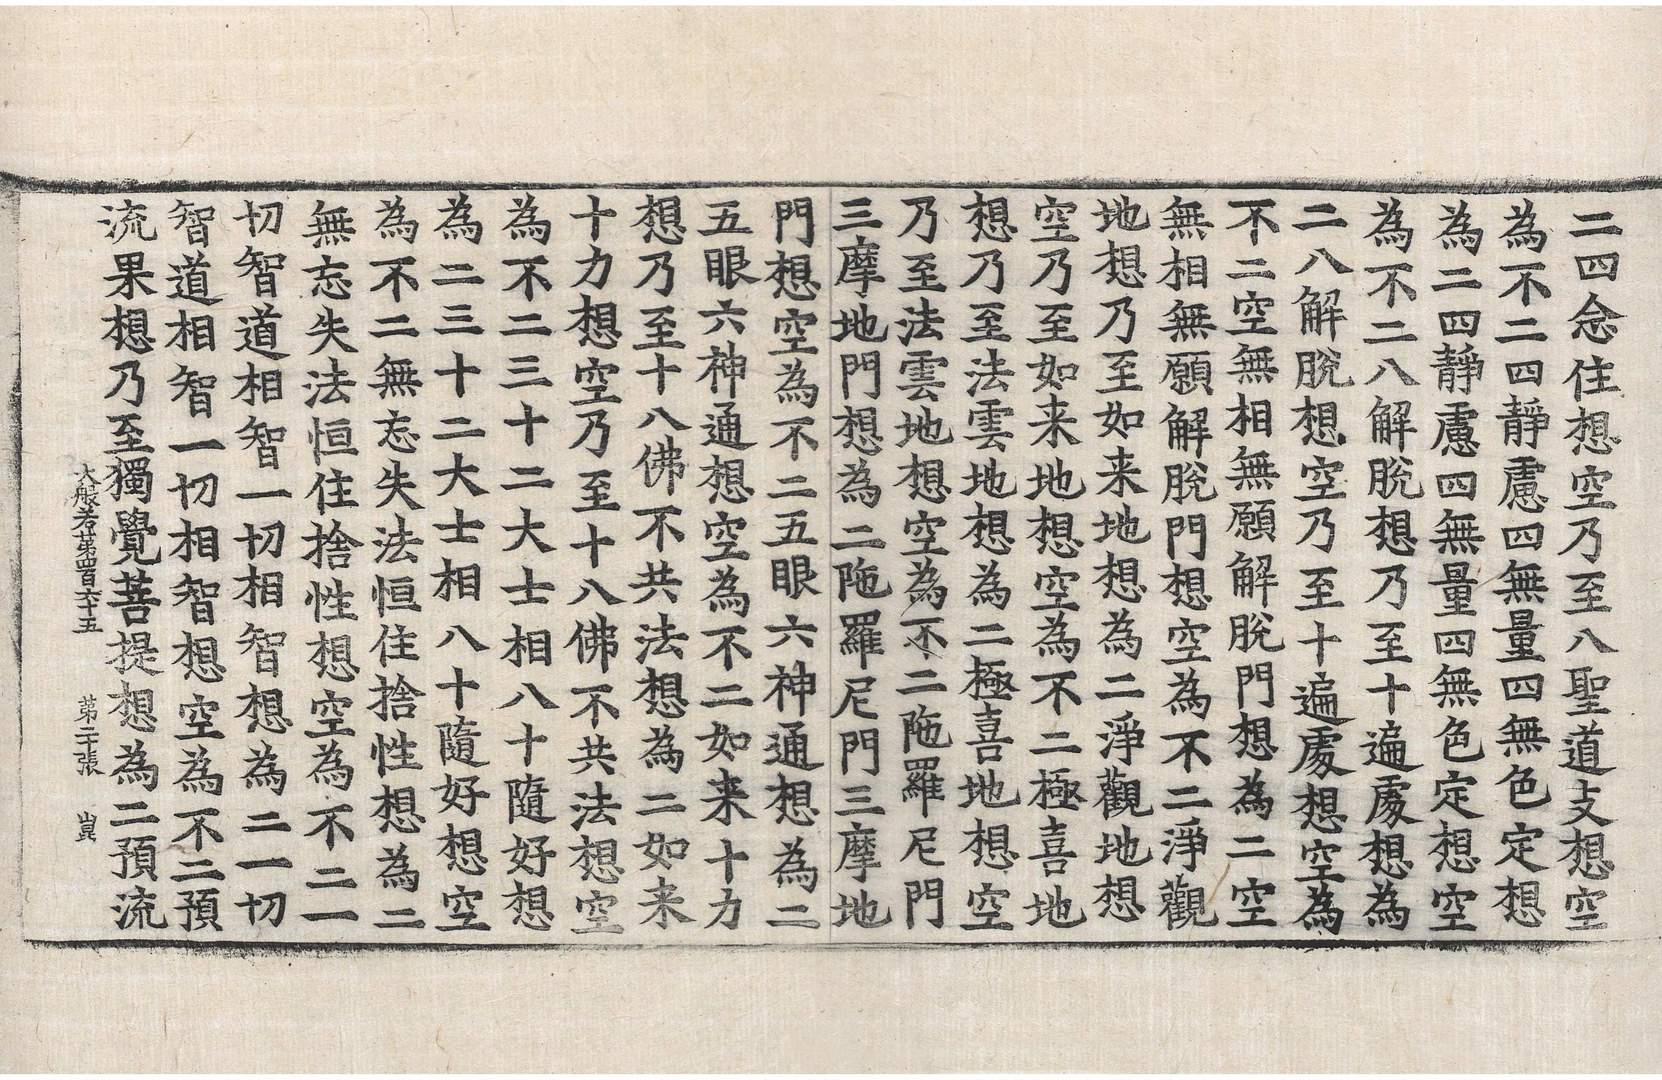 二四念住想空乃至八聖道支想空
為不二四靜慮四無量四無色定想
為二四靜慮四無量四無色定想空
為不二八解脫想乃至十遍處想為
二八解脫想空乃至十遍處想空為
不二空無相無願解脫門想為二空
無相無願解脫門想空為不二淨觀
地想乃至如来地想為二淨觀地想
空乃至如来地想空為不二極喜地
想乃至法雲地想為二極喜地想空
乃至法雲地想空為不二陁羅尼門
三摩地門想為二陁羅尼門三摩地
門想空為不二五眼六神通想為二
五眼六神通想空為不二如来十力
想乃至十八佛不共法想為二如来
十力想空乃至十八佛不共法想空
為不二三十二大士相八十隨好想
為二三十二大士相八十隨好想空
為不二無忘失法恒住捨性想為二
無忘失法恒住捨性想空為不二一
切智道相智一切相智想為二一切
智道相智一切相智想空為不二預
流果想乃至獨覺菩提想為二預流
大般若第四百六十五 第二十張